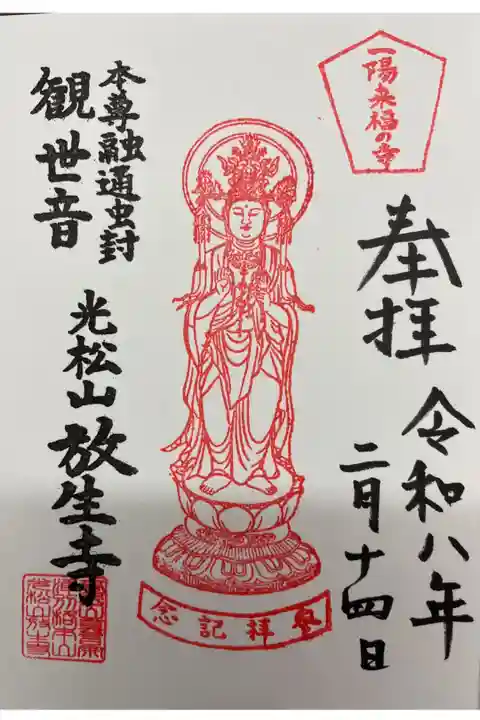 一陽来福の寺
奉拝
令和八年
二月十四日
参拝記念
本尊融通虫封
観世音
光松山
放生寺